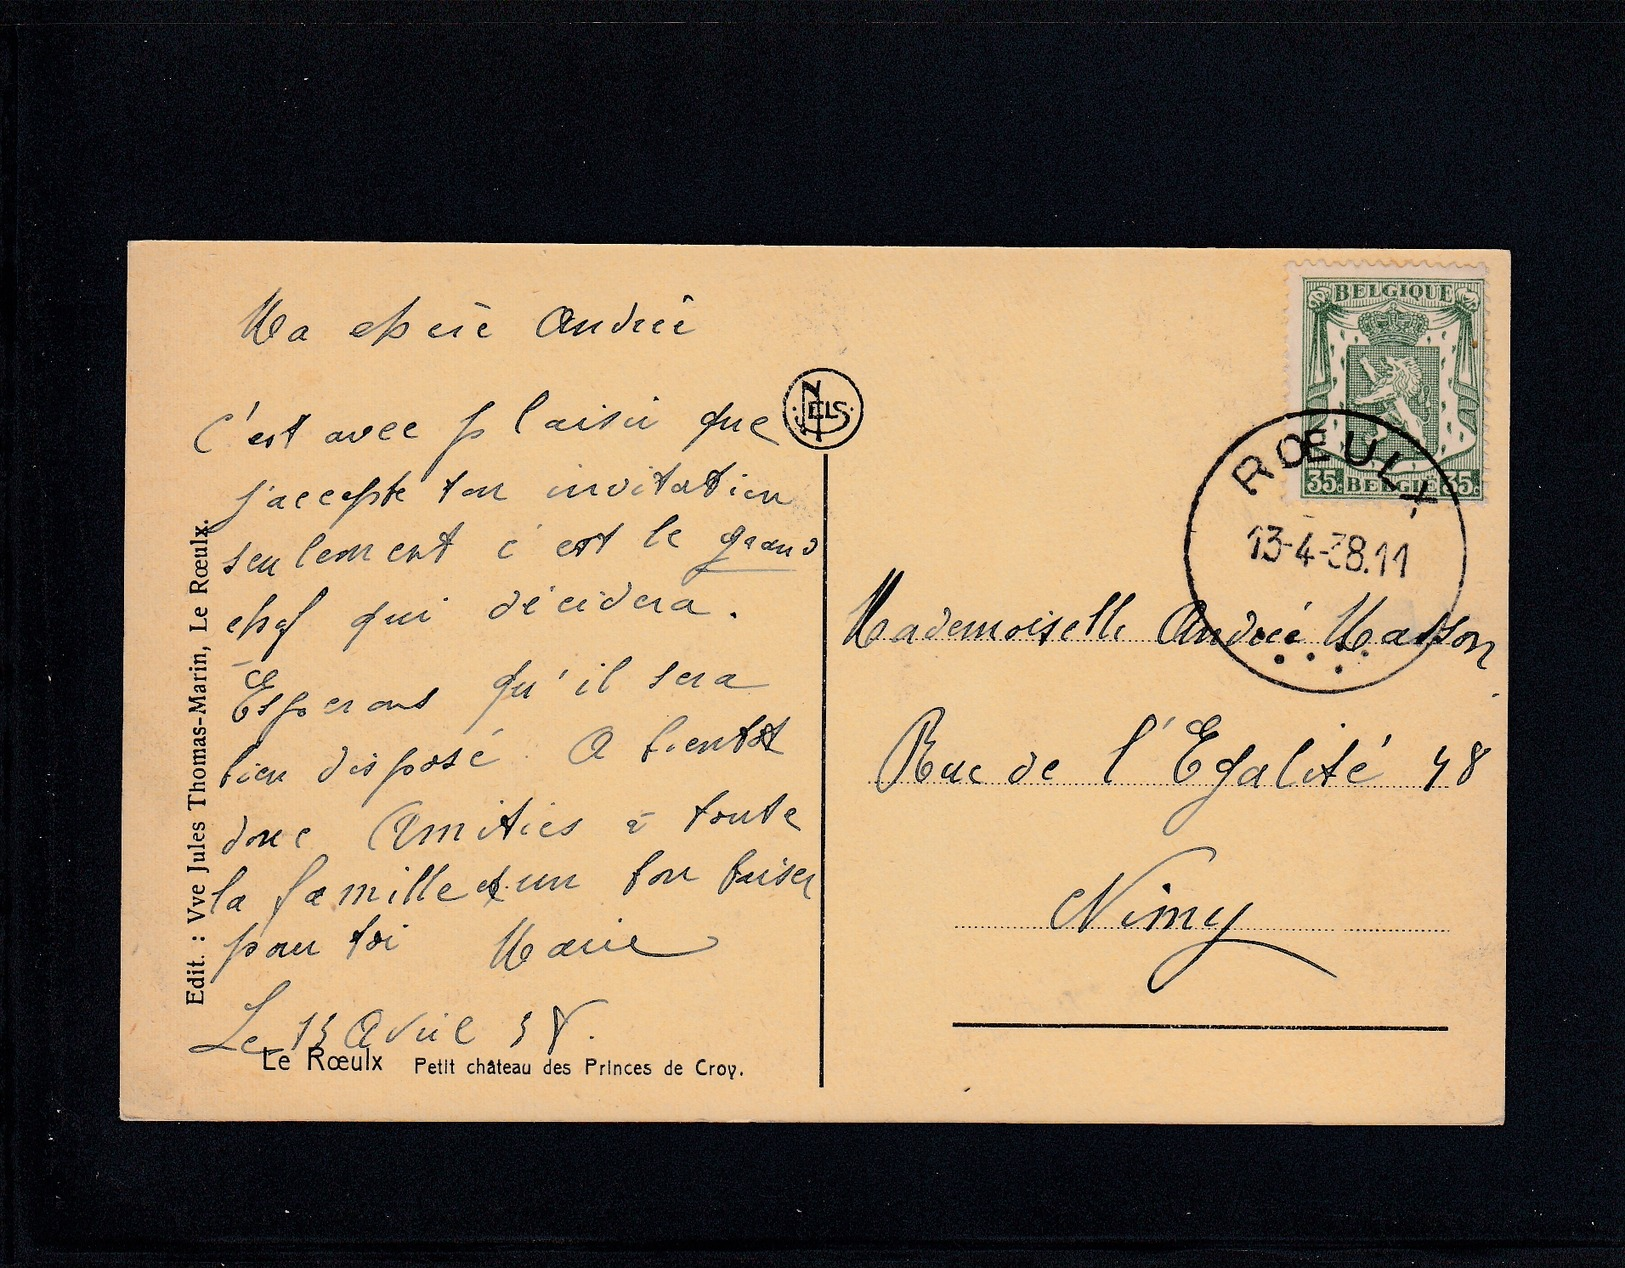 Ma chère Andrée
C'est avec plaisir que
j'accepte ton invitation
seulement c'est le grand
chef qui décidera.
Esperons qu'il sera
bien disposé. A bientot
donc Amitiés à toute
la famille et un bon baiser
pour toi Marie
Le 13 Avril 38.
Le Rœulx Petit château des Princes de Croy.
Edit. : Vve Jules Thomas-Marin, Le Rœulx.
NELS
BELGIQUE
35 BELGIË 35
RŒULX
13-4-38.11
Mademoiselle Andrée Masson
Rue de l'Egalité 48
Nimy